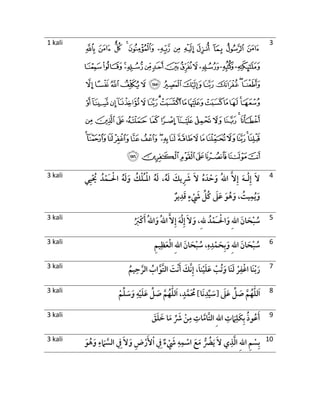 1 kali 3
ءَامَنَ ٱلرَّسُولُ بِمَآ أُنزِلَ إِلَيْهِ مِن رَّبِّهِۦ وَٱلْمُؤْمِنُونَ ۚ كُلٌّ ءَامَنَ بِٱللَّهِ
وَمَلَٰٓئِكَتِهِۦ وَكُتُبِهِۦ وَرُسُلِهِۦ لَا نُفَرِّقُ بَيْنَ أَحَدٍ مِّن رُّسُلِهِۦ ۚ وَقَالُوا۟ سَمِعْنَا
وَأَطَعْنَا ۖ غُفْرَانَكَ رَبَّنَا وَإِلَيْكَ ٱلْمَصِيرُ ٢٨٥ لَا يُكَلِّفُ ٱللَّهُ نَفْسًا إِلَّا
وُسْعَهَا ۚ لَهَا مَا كَسَبَتْ وَعَلَيْهَا مَا ٱكْتَسَبَتْ ۗ رَبَّنَا لَا تُؤَاخِذْنَآ إِن نَّسِينَآ أَوْ
أَخْطَأْنَا ۚ رَبَّنَا وَلَا تَحْمِلْ عَلَيْنَآ إِصْرًا كَمَا حَمَلْتَهُۥ عَلَى ٱلَّذِينَ مِن
قَبْلِنَا ۚ رَبَّنَا وَلَا تُحَمِّلْنَا مَا لَا طَاقَةَ لَنَا بِهِۦ ۖ وَٱعْفُ عَنَّا وَٱغْفِرْ لَنَا وَٱرْحَمْنَآ ۚ
أَنتَ مَوْلَىٰنَا فَٱنصُرْنَا عَلَى ٱلْقَوْمِ ٱلْكَٰفِرِينَ ٢٨٦
3 kali 4
لَا إِلَٰهَ إِلَّا اللهُ وَحْدَهُ لَا شَرِيكَ لَهُ، لَهُ الْمُلْكُ وَلَهُ الْحَمْدُ يُحْيِي
وَيُمِيتُ وَهُوَ عَلَى كُلِّ شَيْءٍ قَدِيرٌ
3 kali 5
سُبْحَانَ اللهِ وَالْحَمْدُ لِلهِ، وَلَا إِلَهَ إِلَّا اللهُ وَاللهُ أَكْبَرُ
3 kali 6
سُبْحَانَ اللهِ وَبِحَمْدِهِ، سُبْحَانَ اللهِ الْعَظِيمِ
3 kali 7
رَبَّنَا اغْفِرْ لَنَا وَتُبْ عَلَيْنَا، إِنَّكَ أَنْتَ التَّوَّابُ الرَّحِيمُ
3 kali 8
اَللَّهُمَّ صَلِّ عَلَى [سَيِّدِنَا] مُحَمَّدٍ، اَللَّهُمَّ صَلِّ عَلَيْهِ وَسَلِّمْ
3 kali 9
أَعُوذُ بِكَلِمَاتِ اللهِ التَّامَّاتِ مِنْ شَرِّ مَا خَلَقَ
3 kali 10
بِسْمِ اللهِ الَّذِي لَا يَضُرُّ مَعَ اسْمِهِ شَيْءٌ فِي الْأَرْضِ وَلَا فِي السَّمَاءِ وَهُوَ